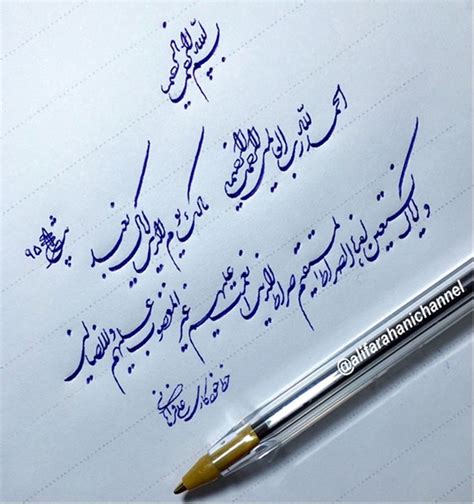 بسم الله الرحمن الرحیم
الحمد لله رب العالمین الرحمن الرحیم
مالک یوم الدین ایاک نعبد
و ایاک نستعین اهدنا الصراط المستقیم صراط الذین انعمت علیهم غیر المغضوب علیهم ولاالضالین
۹۵
علی فراهانی
@alifarahanichannel